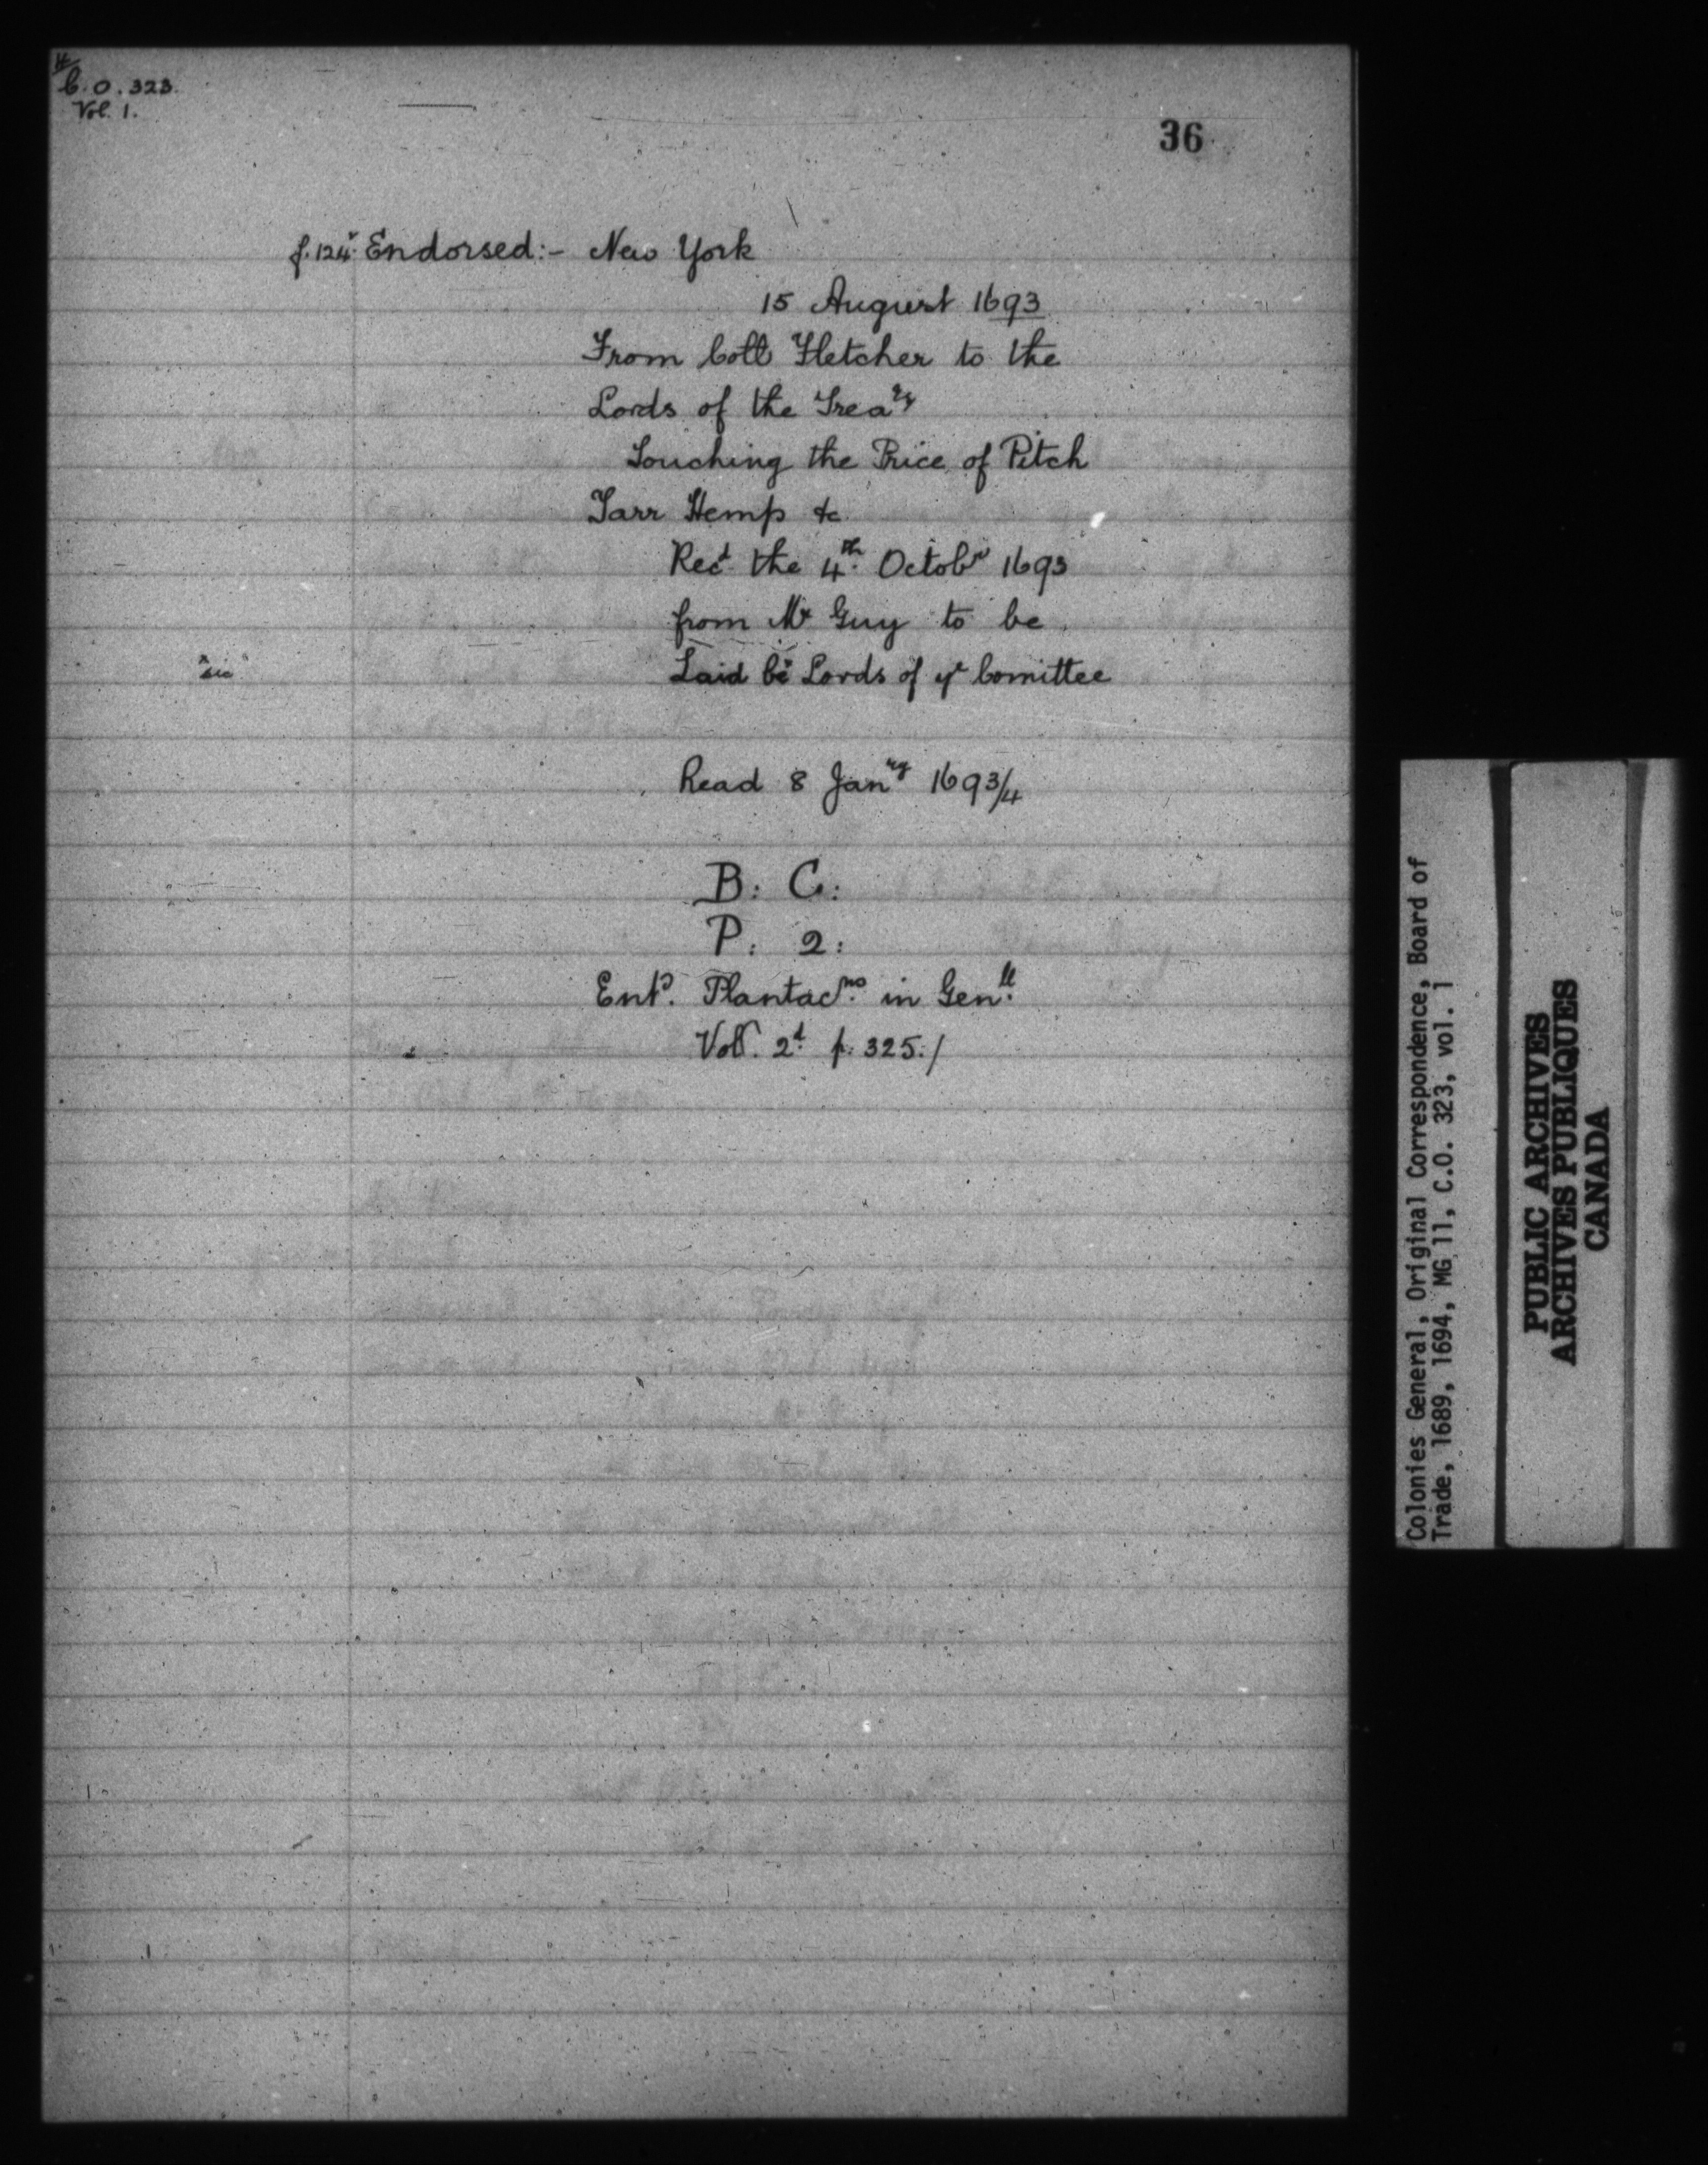 C.O. 323.
Vol. 1.
36
f.124ᵛ Endorsed:- New York
15 August 1693
From Coll Fletcher to the
Lords of the Treaʳʸ
Touching the Price of Pitch
Tarr Hemp &c
Recᵈ the 4ᵗʰ Octobʳ 1693
from Mʳ Guy to be
"sic" Laid be Lords of yᵉ Comittee
Read 8 Janʳʸ 1693/4
B: C:
P: 2:
Entᵈ. Plantacⁿˢ in Genˡˡ
Vol. 2ᵈ p. 325./
Colonies General, Original Correspondence, Board of
Trade, 1689, 1694, MG 11, C.O. 323, vol. 1
PUBLIC ARCHIVES
ARCHIVES PUBLIQUES
CANADA